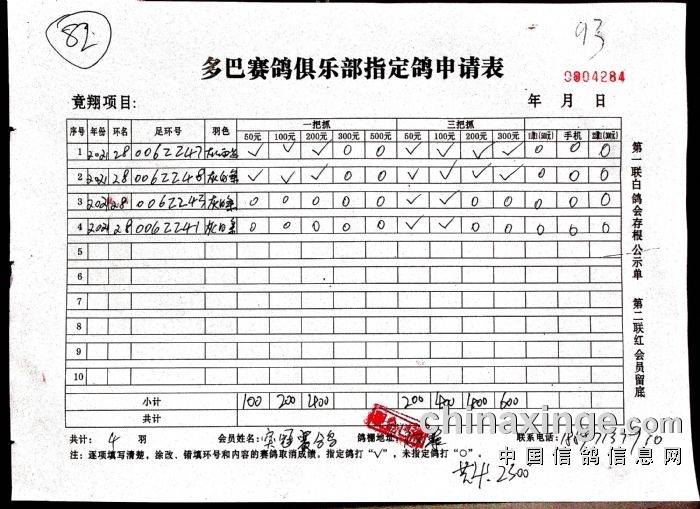 82
93
多巴赛鸽俱乐部指定鸽申请表
0004284
竞翔项目:
年 月 日
序号 年份 环名 足环号 羽色 一把抓 三把抓
50元 100元 200元 300元 500元 50元 100元 200元 300元 手机
1 2021 28 0062247 √ √ √ 0 0 √ √ √ √ 0 0 0
2 2021 28 0062248 灰白条 √ √ √ 0 0 √ √ √ √ 0 0 0
3 2021 28 0062243 灰白条 0 0 0 0 0 √ √ 0 0 0 0 0
4 2021 28 0062241 灰白条 0 0 0 0 0 √ √ 0 0 0 0 0
5
6
7
8
9
10
小计 100 200 400 200 400 400 600
共计
第一联白 鸽会存根公示单
第二联红 会员留底
共计: 4 羽 会员姓名: 赛鸽 鸽棚地址: 联系电话:
注:逐项填写清楚,涂改、错填环号和内容的赛鸽取消成绩。指定鸽打“√”,未指定鸽打“○”。
共4. 2300
chinaxinge.com
中国信鸽信息网